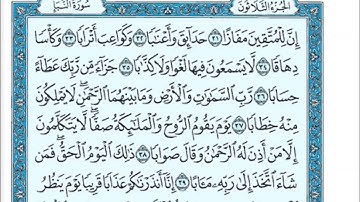 الجزء الثلاثون سورة النبأ
إِنَّ لِلْمُتَّقِينَ مَفَازًا ٣١ حَدَائِقَ وَأَعْنَابًا ٣٢ وَكَوَاعِبَ أَتْرَابًا ٣٣ وَكَأْسًا
دِهَاقًا ٣٤ لَّا يَسْمَعُونَ فِيهَا لَغْوًا وَلَا كِذَّابًا ٣٥ جَزَاءً مِّن رَّبِّكَ عَطَاءً
حِسَابًا ٣٦ رَّبِّ السَّمَٰوَٰتِ وَالْأَرْضِ وَمَا بَيْنَهُمَا الرَّحْمَٰنِ لَا يَمْلِكُونَ
مِنْهُ خِطَابًا ٣٧ يَوْمَ يَقُومُ الرُّوحُ وَالْمَلَٰئِكَةُ صَفًّا لَّا يَتَكَلَّمُونَ
إِلَّا مَنْ أَذِنَ لَهُ الرَّحْمَٰنُ وَقَالَ صَوَابًا ٣٨ ذَٰلِكَ الْيَوْمُ الْحَقُّ فَمَن
شَاءَ اتَّخَذَ إِلَىٰ رَبِّهِ مَـَٔابًا ٣٩ إِنَّا أَنذَرْنَٰكُمْ عَذَابًا قَرِيبًا يَوْمَ يَنظُرُ